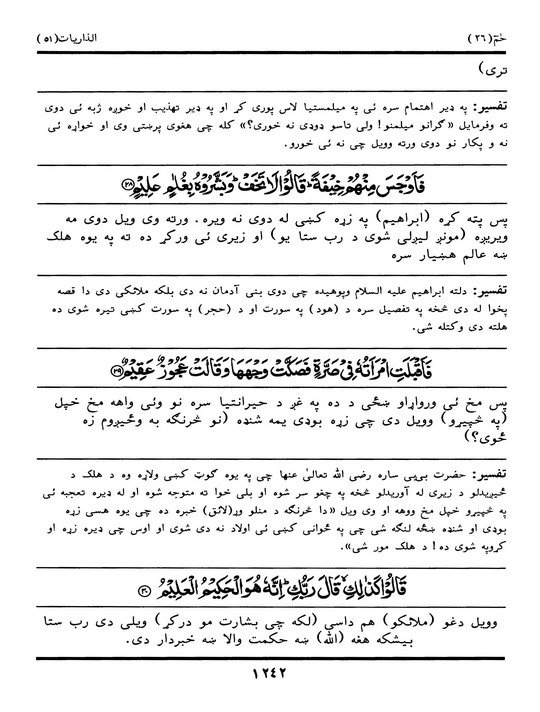 حٰمٓ (۲٦) الذاریات (۵۱)
تری)
تفسیر: په ډیر اهتمام سره ئی په میلمستیا لاس پوری کړ او په ډیر تهذیب او خوږه ژبه ئی دوی
ته وفرمایل «گرانو میلمنو! ولی تاسو ډوډی نه خوری؟» کله چی هغوی پرښتی وی او خواړه ئی
نه و پکار نو دوی ورته وویل چی نه ئی خورو.
فَاَوْجَسَ مِنْهُمْ خِيْفَةً ؕ قَالُوْا لَا تَخَفْ ؕ وَبَشَّرُوْهُ بِغُلٰمٍ عَلِيْمٍ ﴿۲۸﴾
پس پټه کړه (ابراهیم) په زړه کښی له دوی نه ویره. ورته وی ویل دوی مه
ویریږه (مونږ لیږلی شوی د رب ستا یو) او زیری ئی ورکړ ده ته په یوه هلک
ښه عالم هښیار سره
تفسیر: دلته ابراهیم علیه السلام وپوهیده چی دوی بنی آدمان نه دی بلکه ملائکی دی دا قصه
پخوا له دی څخه په تفصیل سره د (هود) په سورت او د (حجر) په سورت کښی تیره شوی ده
هلته دی وکتله شی.
فَاَقْبَلَتِ امْرَاَتُهٗ فِيْ صَرَّةٍ فَصَكَّتْ وَجْهَهَا وَقَالَتْ عَجُوْزٌ عَقِيْمٌ ﴿۲۹﴾
پس مخ ئی ورواړاو ښځی د ده په غږ د حیرانتیا سره نو وئی واهه مخ خپل
(په څپیړو) وویل دی چی زړه بوډی یمه شنډه (نو څرنگه به وځیږوم زه
ځوی؟)
تفسیر: حضرت بی‌بی ساره رضی الله تعالیٰ عنها چی په یوه گوټ کښی ولاړه وه د هلک د
ځیږیدلو د زیری له آوریدلو څخه په چغو سر شوه او بلی خوا ته متوجه شوه او له ډیره تعجبه ئی
په څپیړو خپل مخ ووهه او وی ویل «دا څرنگه د منلو وړ(لائق) خبره ده چی یوه هسی زړه
بوډی او شنډه ښځه لنگه شی چی په ځوانی کښی ئی اولاد نه دی شوی او اوس چی ډیره زړه او
کروپه شوی ده! د هلک مور شی».
قَالُوْا كَذٰلِكِ ۙ قَالَ رَبُّكِ ؕ اِنَّهٗ هُوَ الْحَكِيْمُ الْعَلِيْمُ ﴿۳۰﴾
وویل دغو (ملائکو) هم داسی (لکه چی بشارت مو درکړ) ویلی دی رب ستا
بیشکه هغه (الله) ښه حکمت والا ښه خبردار دی.
۱۲٤۲